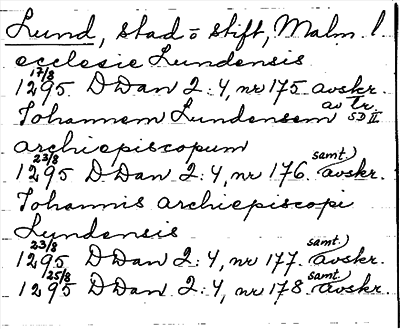 Lund, stad o stift, Malm. l
ecclesie Lundensis
17/8
1295 DDan 2:4, nr 175 avskr.
av tr.
Johannem Lundensem SD II
archiepiscopum
23/8 samt.
1295 DDan 2:4, nr 176. avskr.
Johannis archiepiscopi
Lundensis
23/8 samt.
1295 DDan 2:4, nr 177. avskr.
25/8 samt.
1295 DDan 2:4, nr 178 avskr.